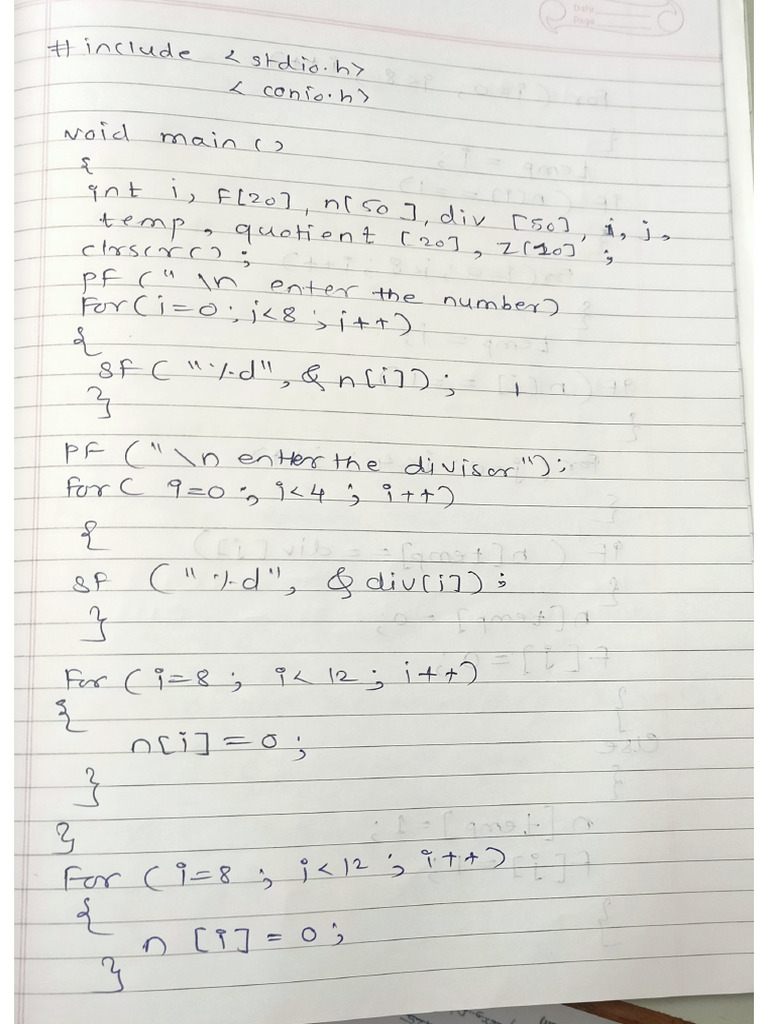 Date
Page
#include <stdio.h>
<conio.h>
void main()
{
int i, F[20], n[50], div [50], i, j,
temp, quotient [20], z[20] ;
clrscrc();
PF ("\n enter the number)
For(i=0; i<8 ; i++)
{
SF ("%d", & n[i]);
}
PF ("\n enter the divisor");
For( i=0 ; i<4 ; i++)
{
SF ("%d", & div[i]);
}
For (i=8 ; i<12 ; i++)
{
n[i]=0;
}
}
For (i=8 ; i<12 ; i++)
{
n [i]=0;
}